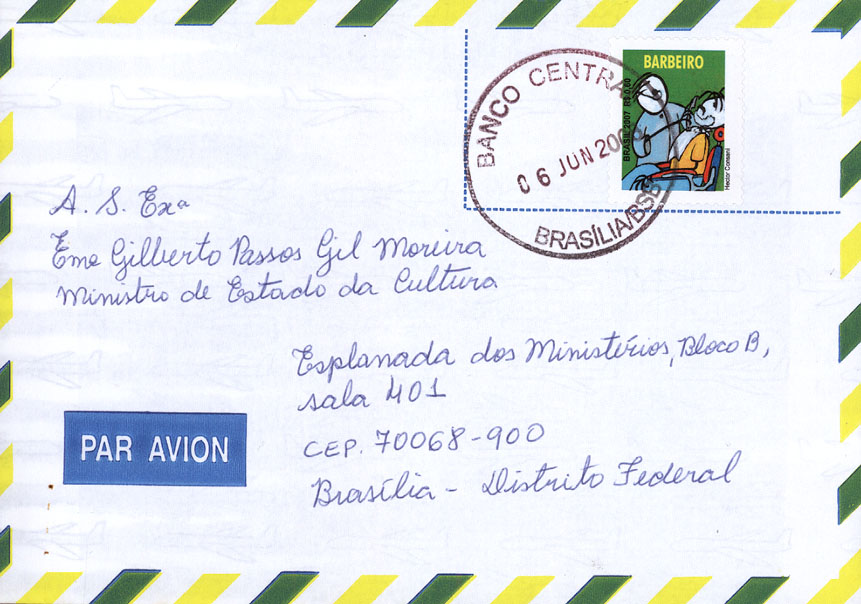 BARBEIRO
BRASIL 2007 R$ 0,60
Hector Consani
BANCO CENTRA
06 JUN 200
BRASÍLIA/BSB
A. S. Exª
Emo Gilberto Passos Gil Moreira
Ministro de Estado da Cultura
Esplanada dos Ministérios, Bloco B,
sala 401
CEP. 70068-900
Brasília - Distrito Federal
PAR AVION